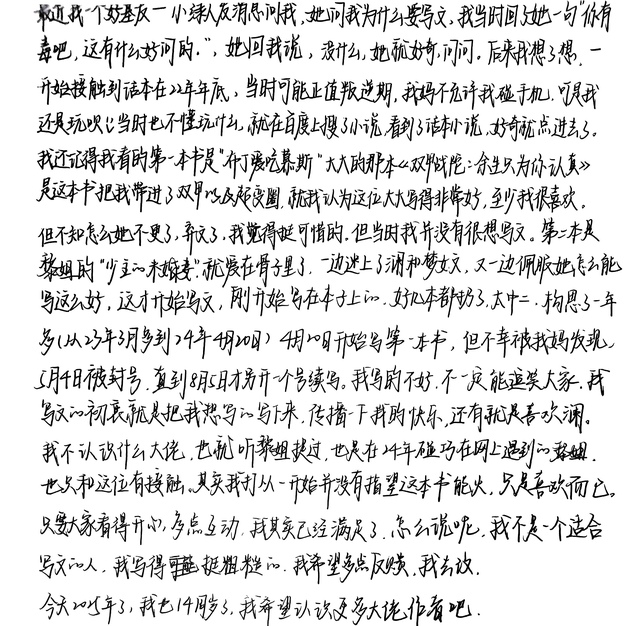 最近我一个好基友一小绿人发消息问我,她问我为什么要写文、我当时回了她一句“你有
毒吧,这有什么好问的.”,她回我说,没什么,她就好奇,问问。后来我想了想,一
开始接触到话本在22年年底、当时可能正值叛逆期,我妈不允许我碰手机,可是我
还是玩呗(:当时也不懂玩什么,就在百度上搜了小说,看到了话本小说,好奇就点进去了。
我还记得我看的第一本书是“布丁爱吃慕斯”大大的那本《双男战陀:余生只为你认真》
是这本书把我带进了双男以及圈,就我认为这位大大写得非常好,至少我很喜欢,
但不知怎么她不更了,弃文了,我觉得挺可惜的.但当时我并没有很想写文。第二本是
黎姐的“少主的未婚妻”就爱在骨子里了,一边迷上了澜和梦女文,又一边佩服她怎么能
写这么好,这才开始写文,刚开始写在本子上的.好几本都扔了,太中二.构思了一年
多(从23年3月多到24年4月20日)4月20日开始写第一本书,但不幸被我妈发现、
5月4日被封号.直到8月5日才另开一个号续写。我写的不好.不一定能逗笑大家.我
写文的初衷就是把我想写的写下来,传播一下我的快乐,还有就是喜欢澜。
我不认识什么大佬,也就听黎姐提过,也是在24年碰巧在网上遇到的黎姐.
也只和这位有接触。其实我打从一开始并没有指望这本书能火,只是喜欢而已.
只要大家看得开心,多点互动,我其实已经满足了.怎么说呢,我不是一个适合
写文的人,我写得挺粗糙的.我希望多点反馈,我去改.
今天2025年了,我也14周岁了,我希望认识更多大佬作者吧.